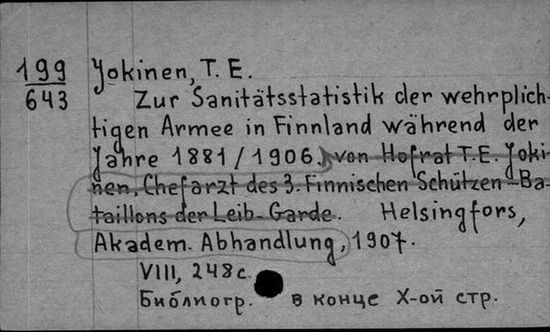 199
643
Yokinen, T. E.
Zur Sanitätsstatistik der wehrpflich-
tigen Armee in Finnland während der
Jahre 1881/1906. von Hofrat T.E. Yoki-
nen, Chefarzt des 3. Finnischen Schützen-Ba-
taillons der Leib-Garde. Helsingfors,
Akadem. Abhandlung, 1907.
VIII, 248 с.
Библиогр. в конце X-ой стр.